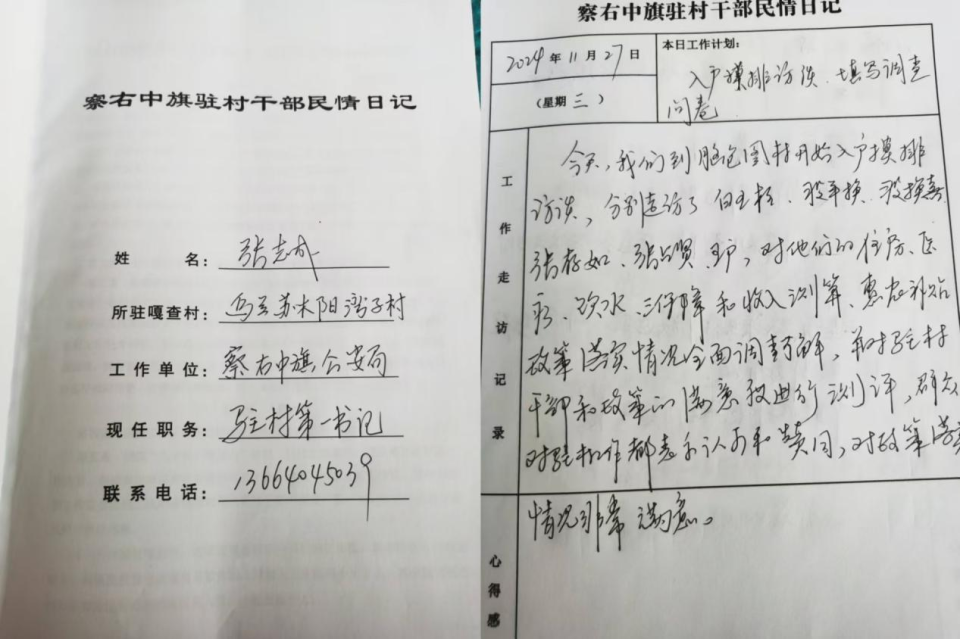 察右中旗驻村干部民情日记
姓 名：张志成
所驻嘎查村：乌兰苏木阳湾子村
工作单位：察右中旗公安局
现任职务：驻村第一书记
联系电话：13664045039
察右中旗驻村干部民情日记
2024 年 11 月 27 日
（星期 三 ）
本日工作计划：
入户摸排访谈、填写调查
问卷
工作走访记录
今天，我们到脑包图村开始入户摸排
访谈，分别走访了
张存如、张 贤 户，对他们的住房、医
疗、饮水、三保障和收入测算、惠农补贴
政策落实情况全面调 了解，并对驻村
干部和政策的满意 进行测评，群众
对驻村工作都表示认可和赞同，对政策落实
情况非常满意。
心得感